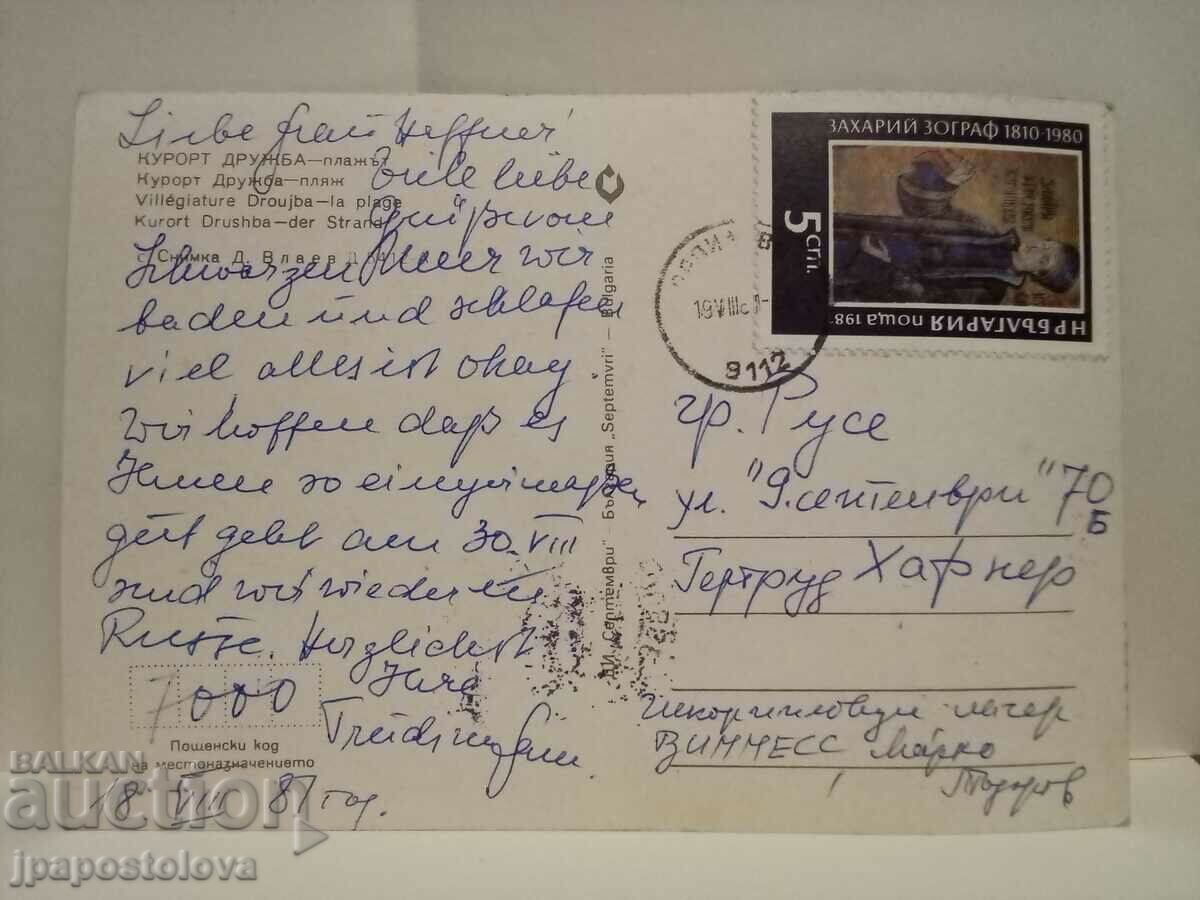 Liebe Frau Heffner!
КУРОРТ ДРУЖБА—плажът
Курорт Дружба—пляж
Villégiature Droujba—la plage
Kurort Drushba—der Strand
Снимка Д. Влаев
Viele liebe
Grüße vom
Schwarzen Meer wir
baden und schlafen
viel alles ist okay
wir hoffen daß es
Ihnen so einigermaßen
gut geht am 30. VIII
sind wir wieder in
Russe. Herzlichst
Ihre
7000
Пощенски код
на местоназначението
18. VIII 81 год.
ДИ „Септември" — България „Septemvri" — Bulgaria
ЗАХАРИЙ ЗОГРАФ 1810-1980
5 СТ.
НР БЪЛГАРИЯ поща 198
19 VIII
9112
гр. Русе
ул. "9. септември" 70
Б
Гертруд Хафнер
лагер
Марко
Тодоров
BALKAN
auction
jpapostolova